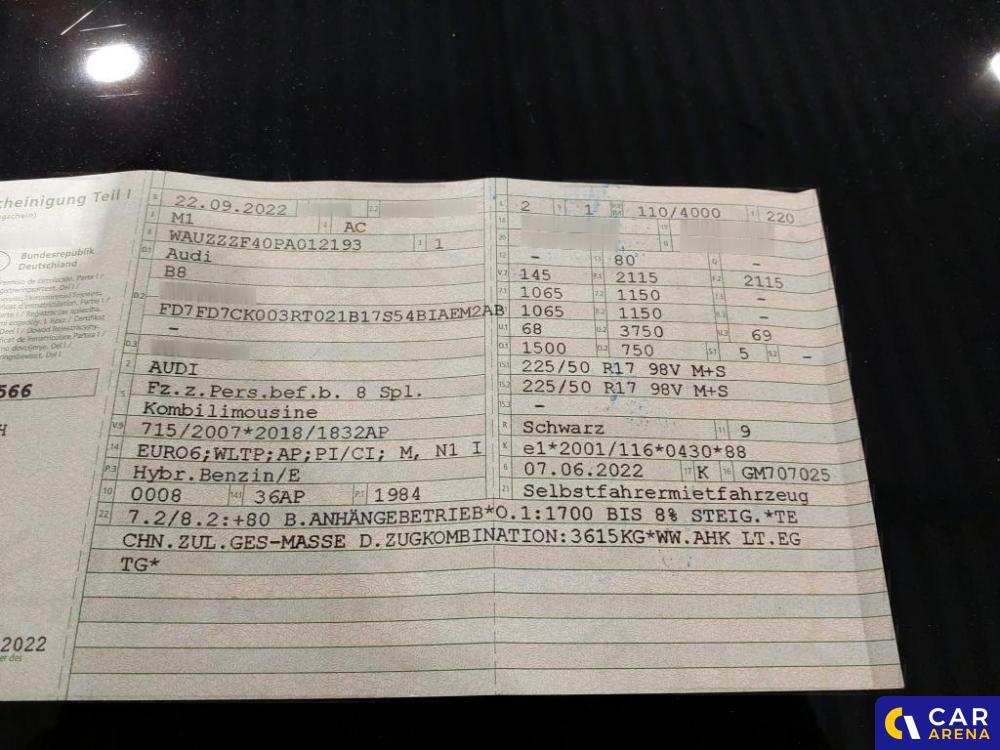 cheinigung Teil I
Bundesrepublik
Deutschland
566
H
2022
B 22.09.2022 2.2
J M1 4 AC
E WAUZZZF40PA012193 3 1
D.1 Audi
B8
D.2
FD7FD7CK003RT021B17S54BIAEM2AB
-
D.3
2 AUDI
5 Fz.z.Pers.bef.b. 8 Spl.
Kombilimousine
V.9 715/2007*2018/1832AP
14 EURO6;WLTP;AP;PI/CI; M, N1 I
P.3 Hybr.Benzin/E
10 0008 14.1 36AP P.1 1984
22 7.2/8.2:+80 B.ANHÄNGEBETRIEB*O.1:1700 BIS 8% STEIG.*TE
CHN.ZUL.GES-MASSE D.ZUGKOMBINATION:3615KG*WW.AHK LT.EG
TG*
L 2 9 1 110/4000 T 220
18 19
20 G
12 - 13 80 Q -
V.7 145 F.1 2115 F.2 2115
7.1 1065 7.2 1150 7.3 -
8.1 1065 8.2 1150 8.3 -
U.1 68 U.2 3750 U.3 69
O.1 1500 O.2 750 S.1 5 S.2 -
15.1 225/50 R17 98V M+S
15.2 225/50 R17 98V M+S
15.3 -
R Schwarz 11 9
K e1*2001/116*0430*88
6 07.06.2022 17 K 16 GM707025
21 Selbstfahrermietfahrzeug
CAR
ARENA